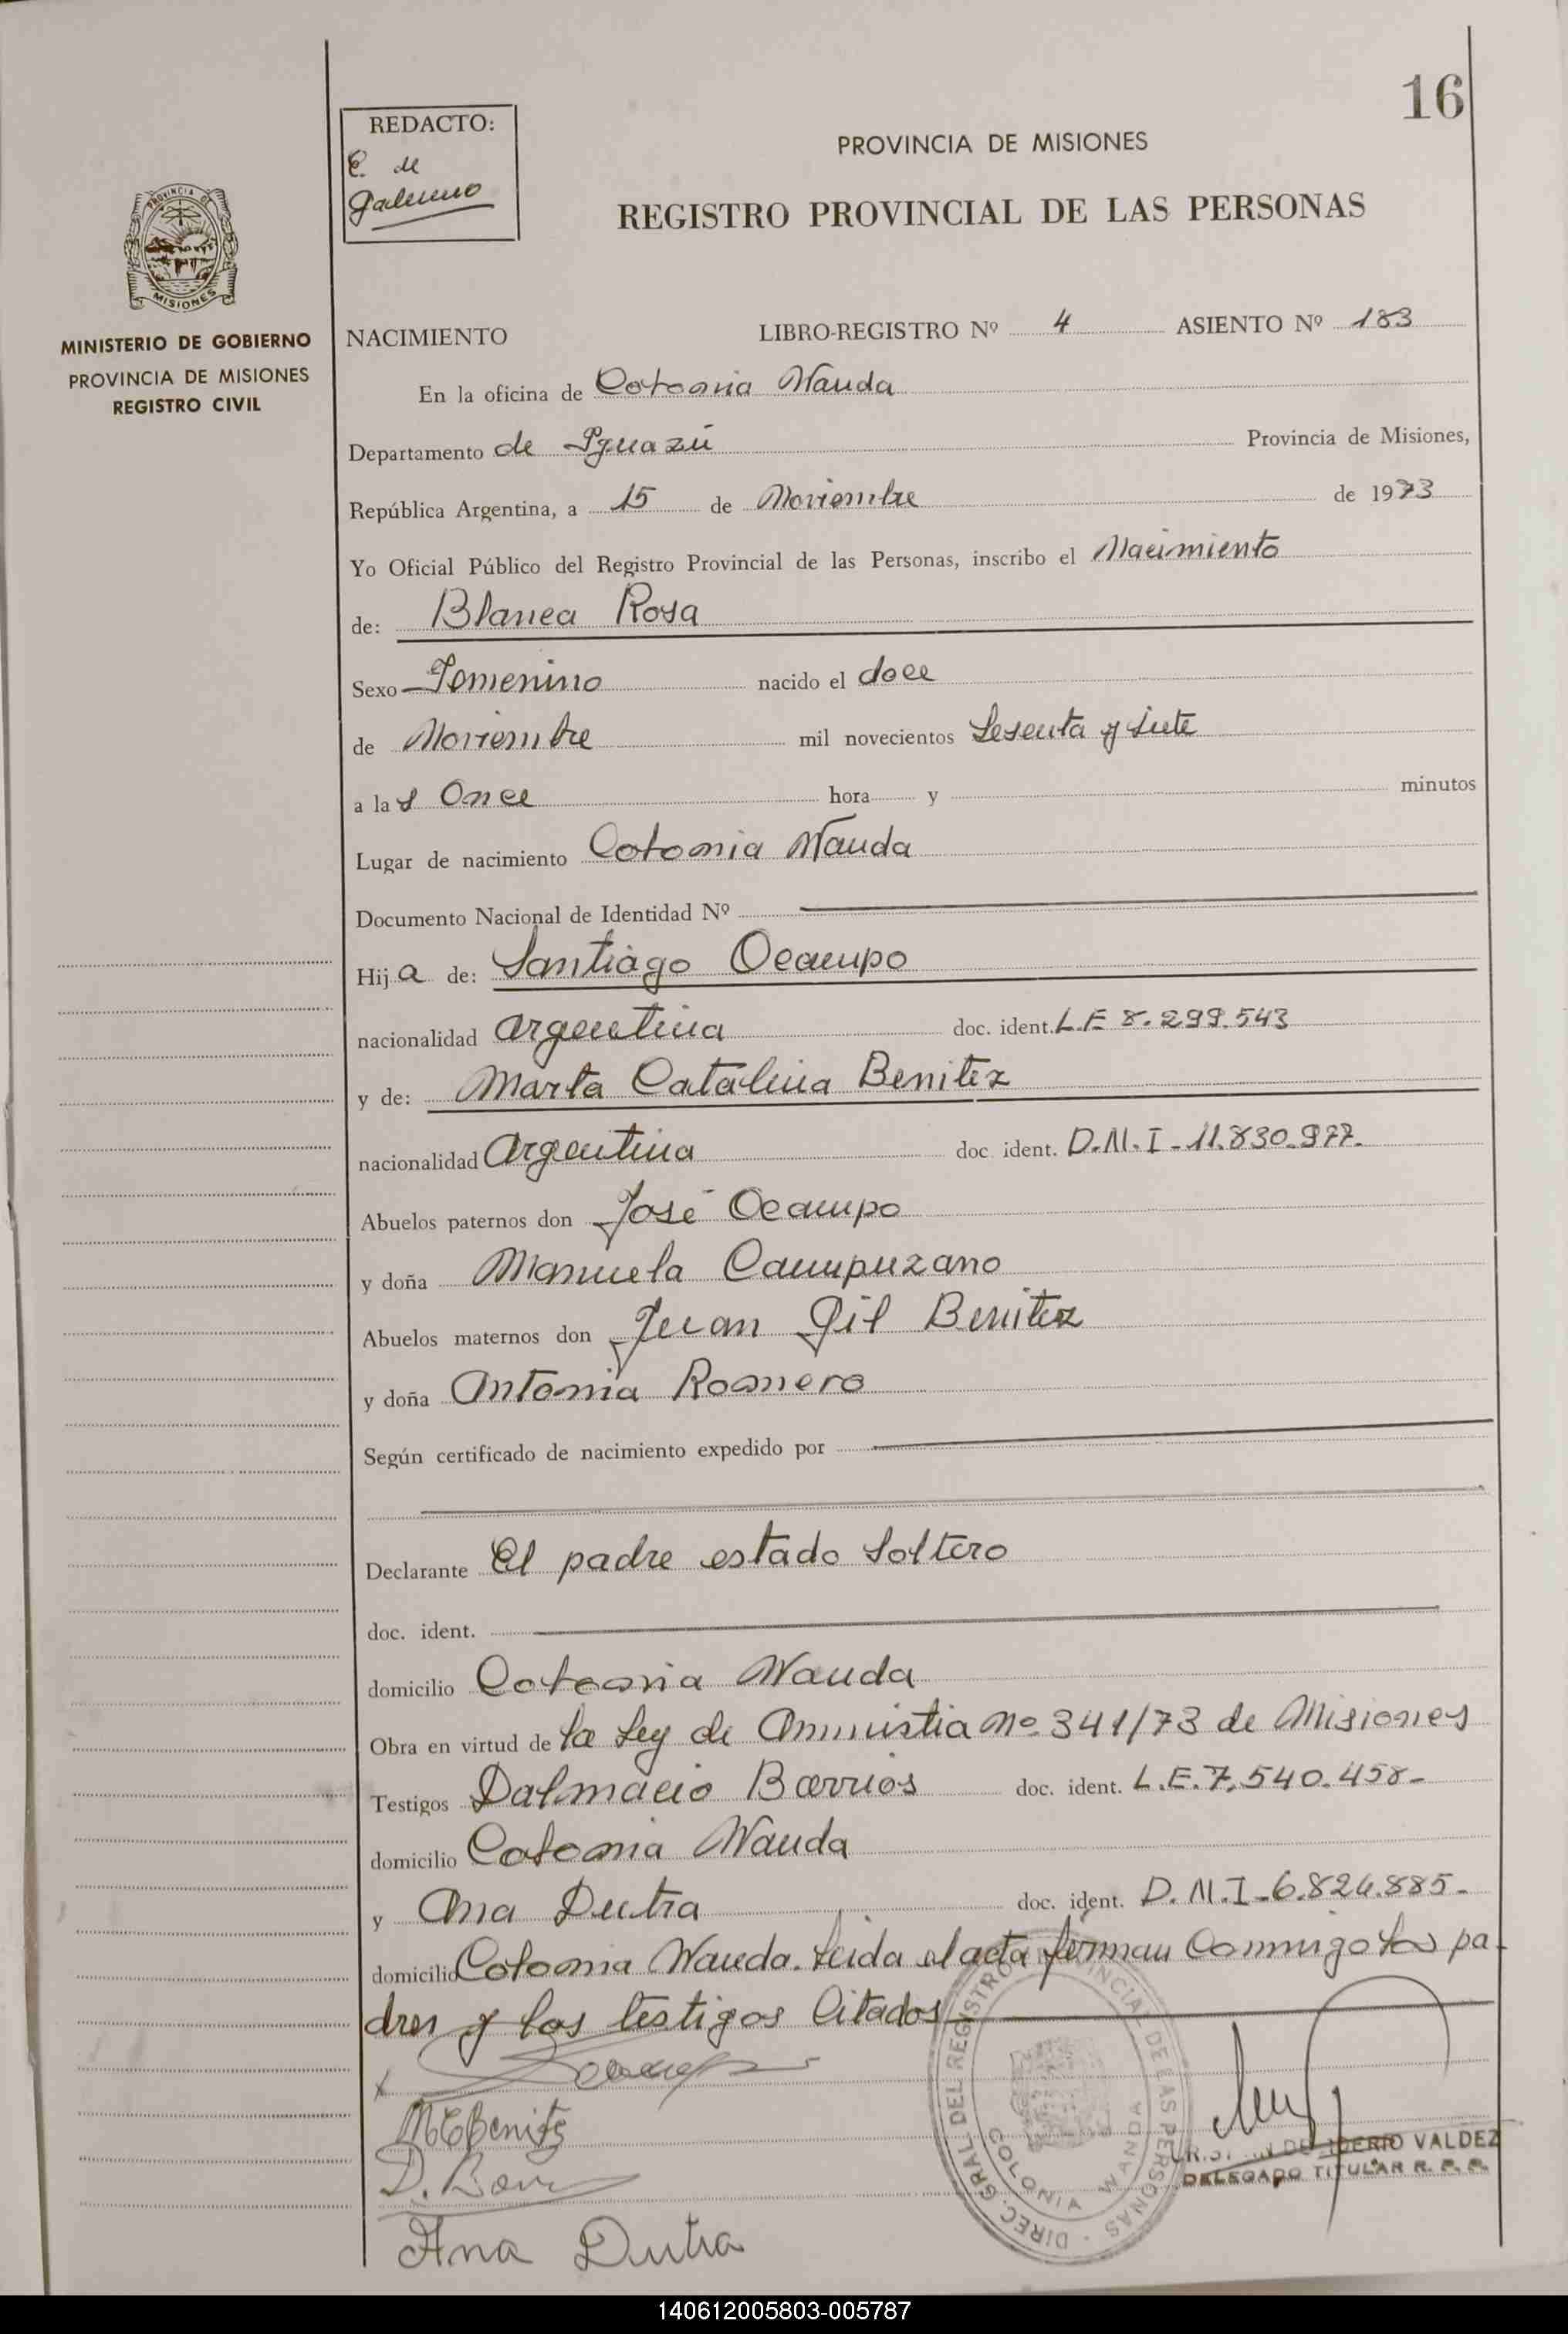 16
REDACTO:
E. de
Galeano
PROVINCIA DE MISIONES
REGISTRO PROVINCIAL DE LAS PERSONAS
PROVINCIA DE
MISIONES
MINISTERIO DE GOBIERNO
PROVINCIA DE MISIONES
REGISTRO CIVIL
NACIMIENTO LIBRO-REGISTRO Nº 4 ASIENTO Nº 183
En la oficina de Colonia Wanda
Departamento de Iguazú Provincia de Misiones,
República Argentina, a 15 de Noviembre de 1973
Yo Oficial Público del Registro Provincial de las Personas, inscribo el Nacimiento
de: Blanca Rosa
Sexo Femenino nacido el doce
de Noviembre mil novecientos Sesenta y siete
a las Once hora y minutos
Lugar de nacimiento Colonia Wanda
Documento Nacional de Identidad Nº
Hija de: Santiago Ocampo
nacionalidad argentina doc. ident. L.E 8.299.543
y de: Marta Catalina Benitez
nacionalidad Argentina doc. ident. D.N.I-11.830.977.
Abuelos paternos don José Ocampo
y doña Manuela Campuzano
Abuelos maternos don Juan Gil Benitez
y doña Antonia Romero
Según certificado de nacimiento expedido por
Declarante El padre estado Soltero
doc. ident.
domicilio Colonia Wanda
Obra en virtud de la Ley de Amnistia Nº 341/73 de Misiones
Testigos Dalmacio Barrios doc. ident. L.E.7.540.458-
domicilio Colonia Wanda
y Ana Dutra doc. ident. D.N.I-6.824.885-
domicilio Colonia Wanda. Leida el acta firman Conmigo los pa-
dres y los testigos Citados
x SOcampo
MCBenitez
D. Barr
Ana Dutra
DIREC. GRAL DEL REGISTRO PROVINCIAL DE LAS PERSONAS
COLONIA WANDA
VALDEZ
DELEGADO TITULAR R. P. P.
140612005803-005787